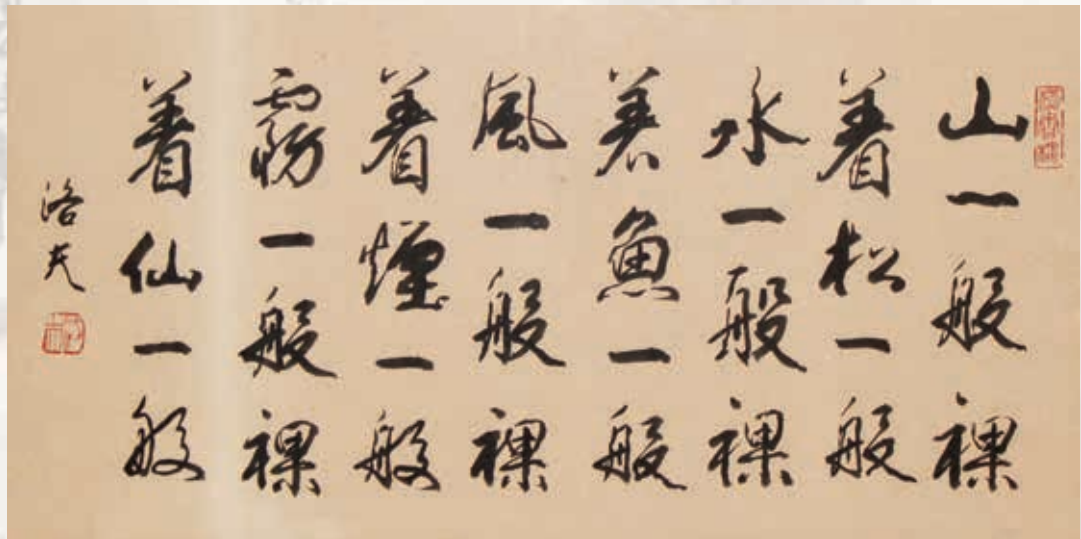 山一般裸
着松一般
水一般裸
着魚一般
風一般裸
着煙一般
霧一般裸
着仙一般
洛夫